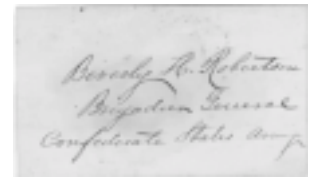 Beverly H. Robertson
Brigadier General
Confederate States Army